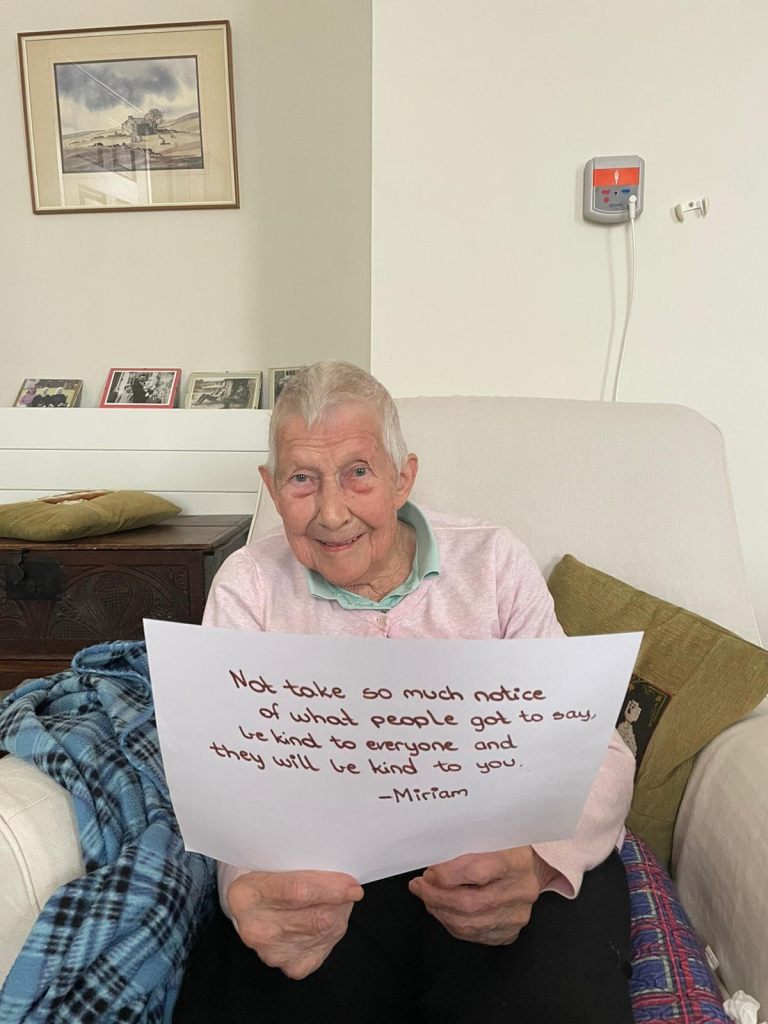 Not take so much notice
of what people got to say,
be kind to everyone and
they will be kind to you.
-Miriam